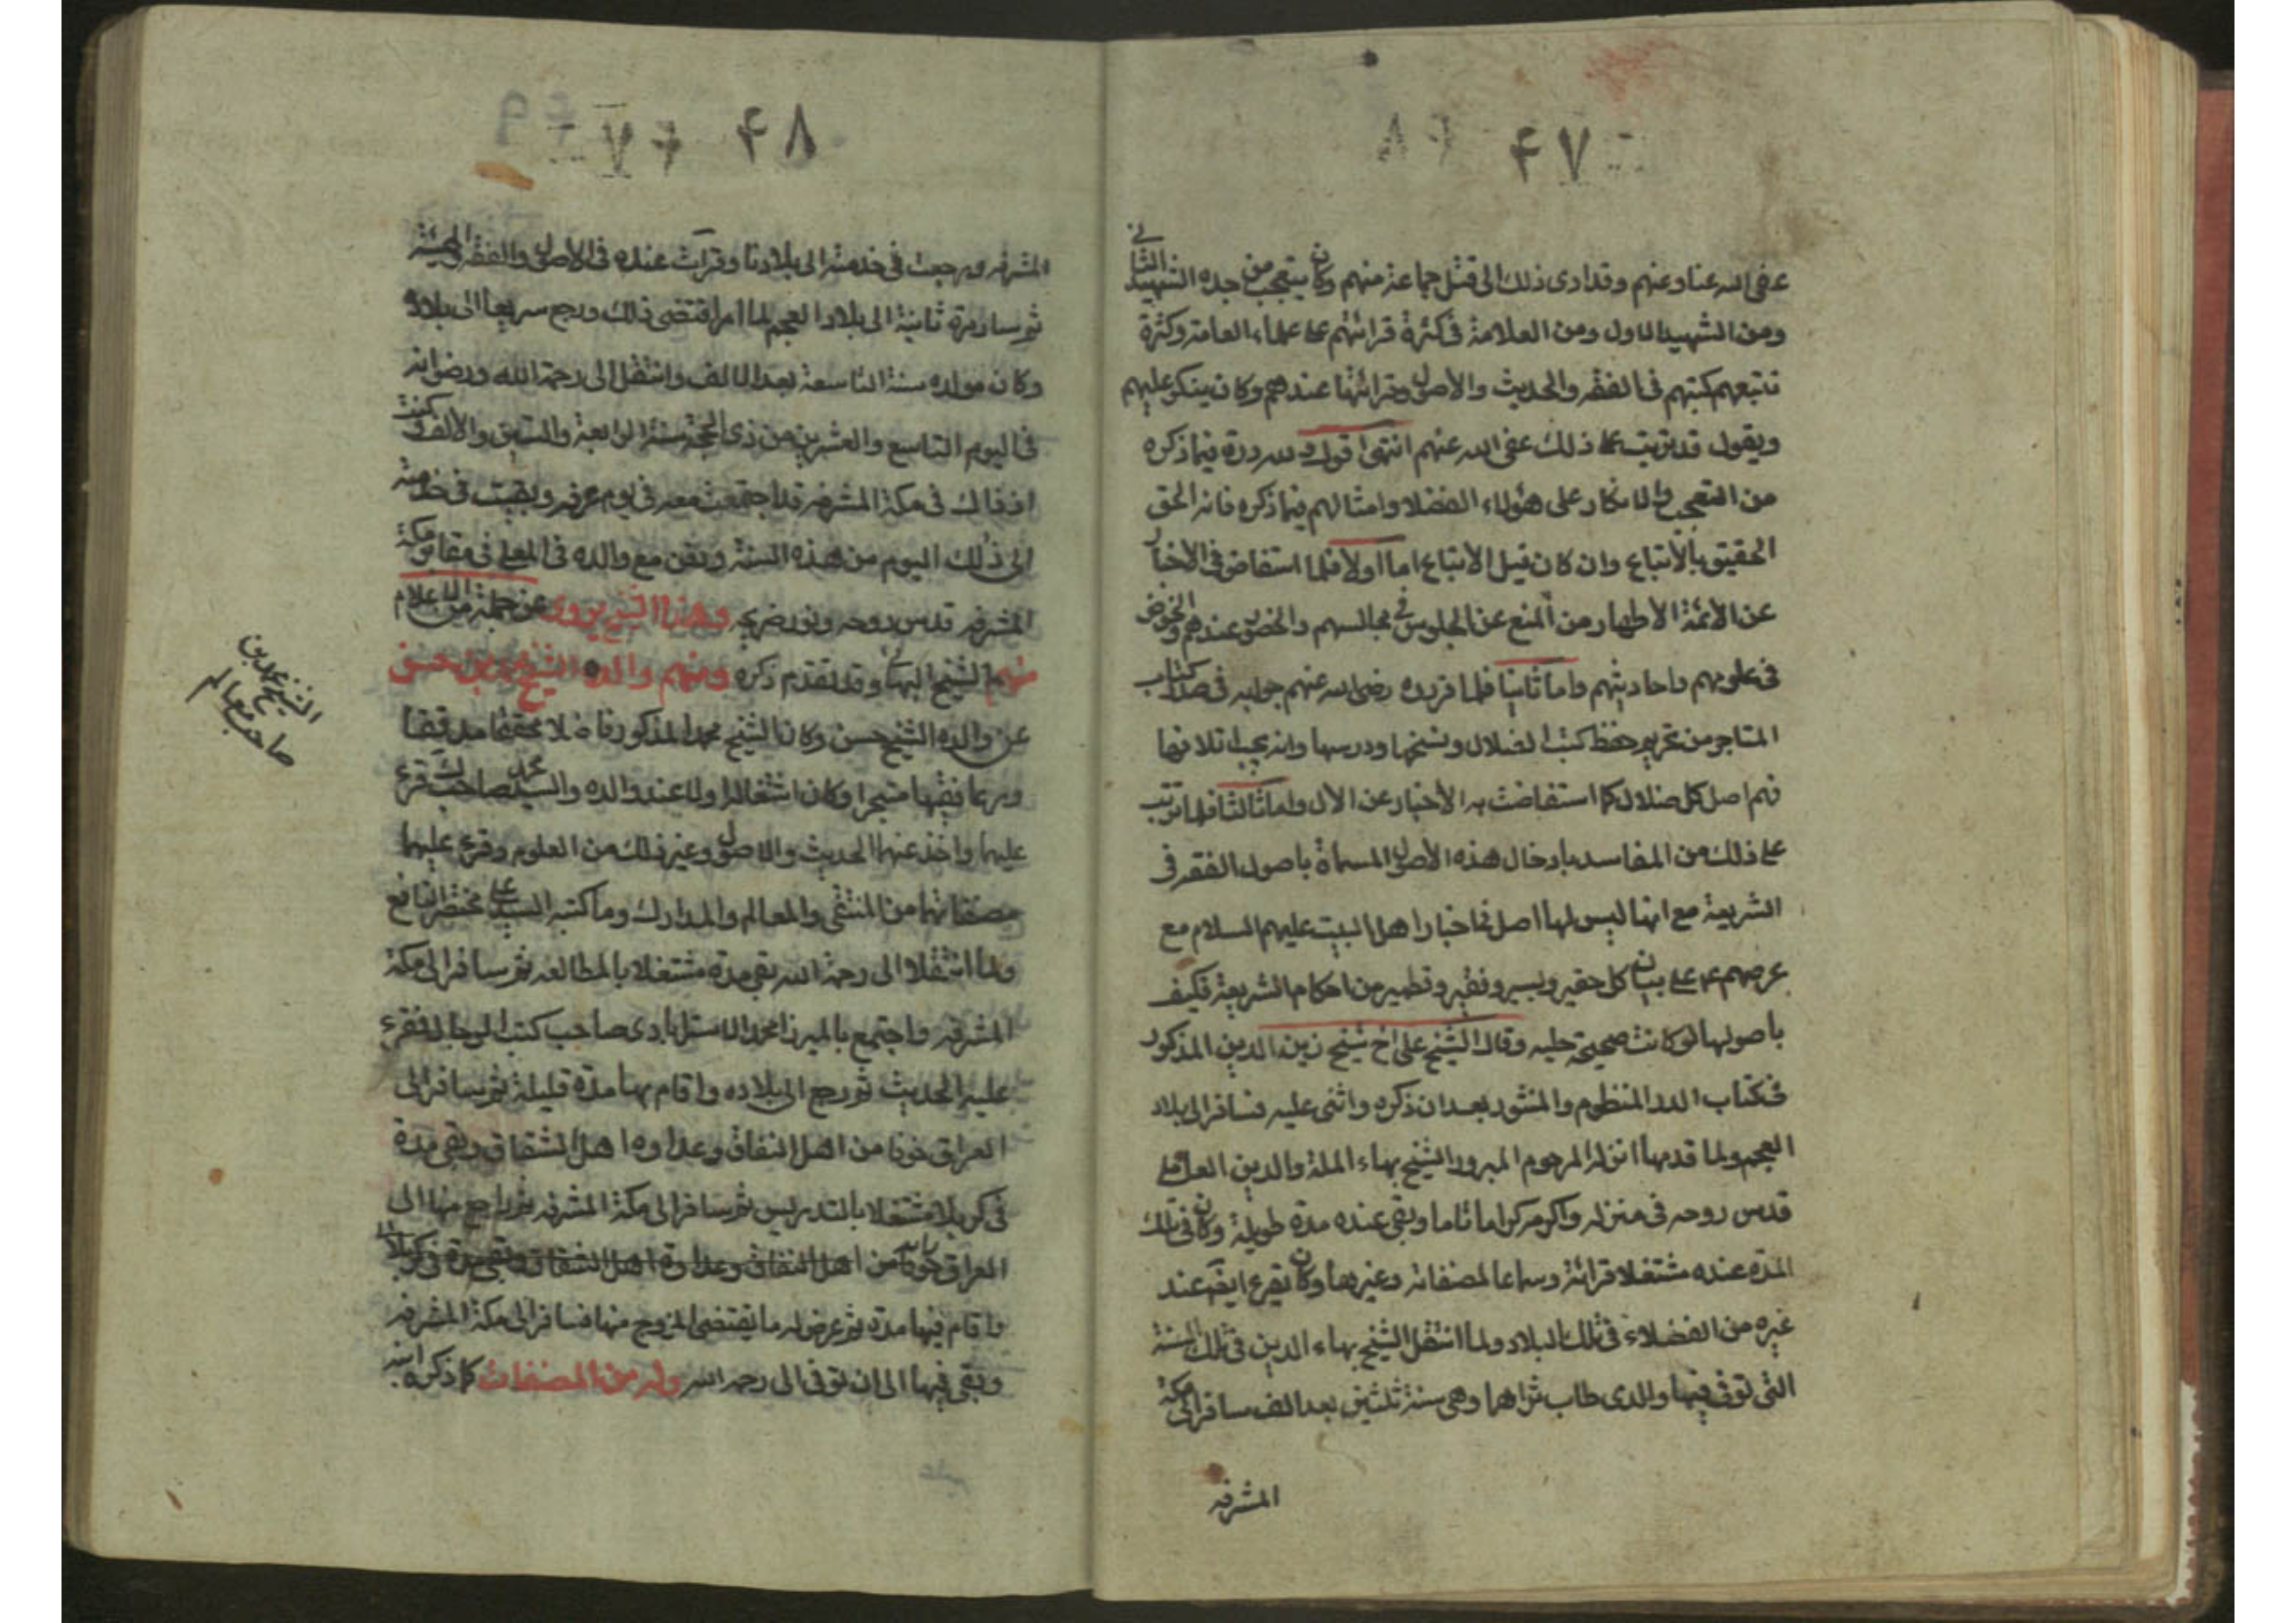 ۴۷
عفى الله عنا وعنهم وقد ادى ذلك الى قتل جماعة منهم وكان يتعجب من جده الشهيد الثاني
ومن الشهيد الاول ومن العلامة في كثرة قرائتهم على علماء العامة وكثرة
تتبعهم كتبهم في الفقه والحديث والاصول وقرائتها عندهم وكان ينكر عليهم
ويقول قد ترتب على ذلك عفى الله عنهم انتهى اقول ولله دره فيما ذكره
من التعجب والانكار على هؤلاء الفضلا وامثالهم فيما ذكره فانه الحق
الحقيق بالأتباع وان كان قيل الاتباع اما اولا فلما استفاض في الاخبار
عن الائمة الاطهار من المنع عن الجلوس في مجالسهم والحضور عندهم والخوض
في علومهم واحاديثهم واما ثانيا فلما قرره رضى الله عنهم جوابه في صدر كتاب
المتاجر من تحريم حفظ كتب الضلال ونسخها ودرسها وانه يجب اتلافها
فهم اصل كل ضلال كما استفاضت به الأخبار عن الآل واما ثالثا فلما ترتب
على ذلك من المفاسد بادخال هذه الأصول المسماة باصول الفقه في
الشريعة مع انها ليس لها اصل في اخبار اهل البيت عليهم السلام مع
عرصهم ع على بيان كل حقير ويسير ونقير وقطمير من احكام الشريعة فكيف
باصولها لو كانت صحيحة جليه وقال الشيخ على اخ شيخ زين الدين المذكور
في كتاب الدر المنظوم والمنثور بعد ان ذكره واثنى عليه فسافر الى بلاد
العجم ولما قدمها انزله المرحوم المبرور الشيخ بهاء الملة والدين العاملي
قدس روحه في منزله واكرمه كراما تاما وبقى عنده مدة طويلة وكان في تلك
المدة عنده مشتغلا قرائة وسماعا لمصنفاته وغيرها وكان يقرء ايضا عند
غيره من الفضلاء في تلك البلاد ولما انتقل الشيخ بهاء الدين في تلك السنة
التى توفى فيها والدى طاب ثراهما وهى سنة ثلثين بعد الف سافر الى مكة
المشرفه
۴۸
المشرفه ورجعت في خدمته الى بلادنا وقرأت عنده في الاصول والفقه والهيئة
ثم سافر مرة ثانية الى بلاد العجم لما امر اقتضى ذلك ورجع سريعا الى بلاده
وكان مولده سنة التاسعة بعد الالف وانتقل الى رحمة الله ورضوانه
في اليوم التاسع والعشرين من ذى الحجة سنة الرابعة والستين والالف وكنت
اذ ذاك في مكة المشرفة قد اجتمعت معه في يوم عرفه وبقيت في خدمته
الى ذلك اليوم من هذه السنة ودفن مع والده في المعلى في مقابر مكة
المشرفه قدس روحه ونور ضريحه وهذا الشيخ يروى عن جملة من الاعلام
منهم الشيخ البهائي وقد تقدم ذكره ومنهم والده الشيخ محمد بن حسن
عن والده الشيخ حسن وكان الشيخ محمد المذكور فاضلا محققا مدققا
ورعا فقيها متبحرا وكان اشتغاله اولا عند والده والسيد محمد صاحب ك قرء
عليهما واخذ عنهما الحديث والاصول وغير ذلك من العلوم وقرء عليهما
مصنفاتهما من المنتقى والمعالم والمدارك وما كتبه السيد على مختصر النافع
ولما انتقلا الى رحمة الله بقى مدة مشتغلا بالمطالعه ثم سافر الى مكة
المشرفه واجتمع بالميرزا محمد الاسترابادى صاحب كتب الرجال فقرء
عليه الحديث ثم رجع الى بلاده واقام بها مدة قليلة ثم سافر الى
العراق خوفا من اهل النفاق وعداوه اهل الشقاق وبقى مدة
في كربلا مشتغلا بالتدريس ثم سافر الى مكة المشرفه ثم راجع منها الى
العراق خوفا من اهل النفاق وعداوة اهل الشقاق وبقى مدة في كربلا
واقام فيها مدة ثم عرض له ما يقتضى الخروج منها فسافر الى مكة المشرفه
وبقى فيها الى ان توفى الى رحمه الله وله من المصنفات كما ذكره ابنه
الشيخ محمد بن
صاحب معالم